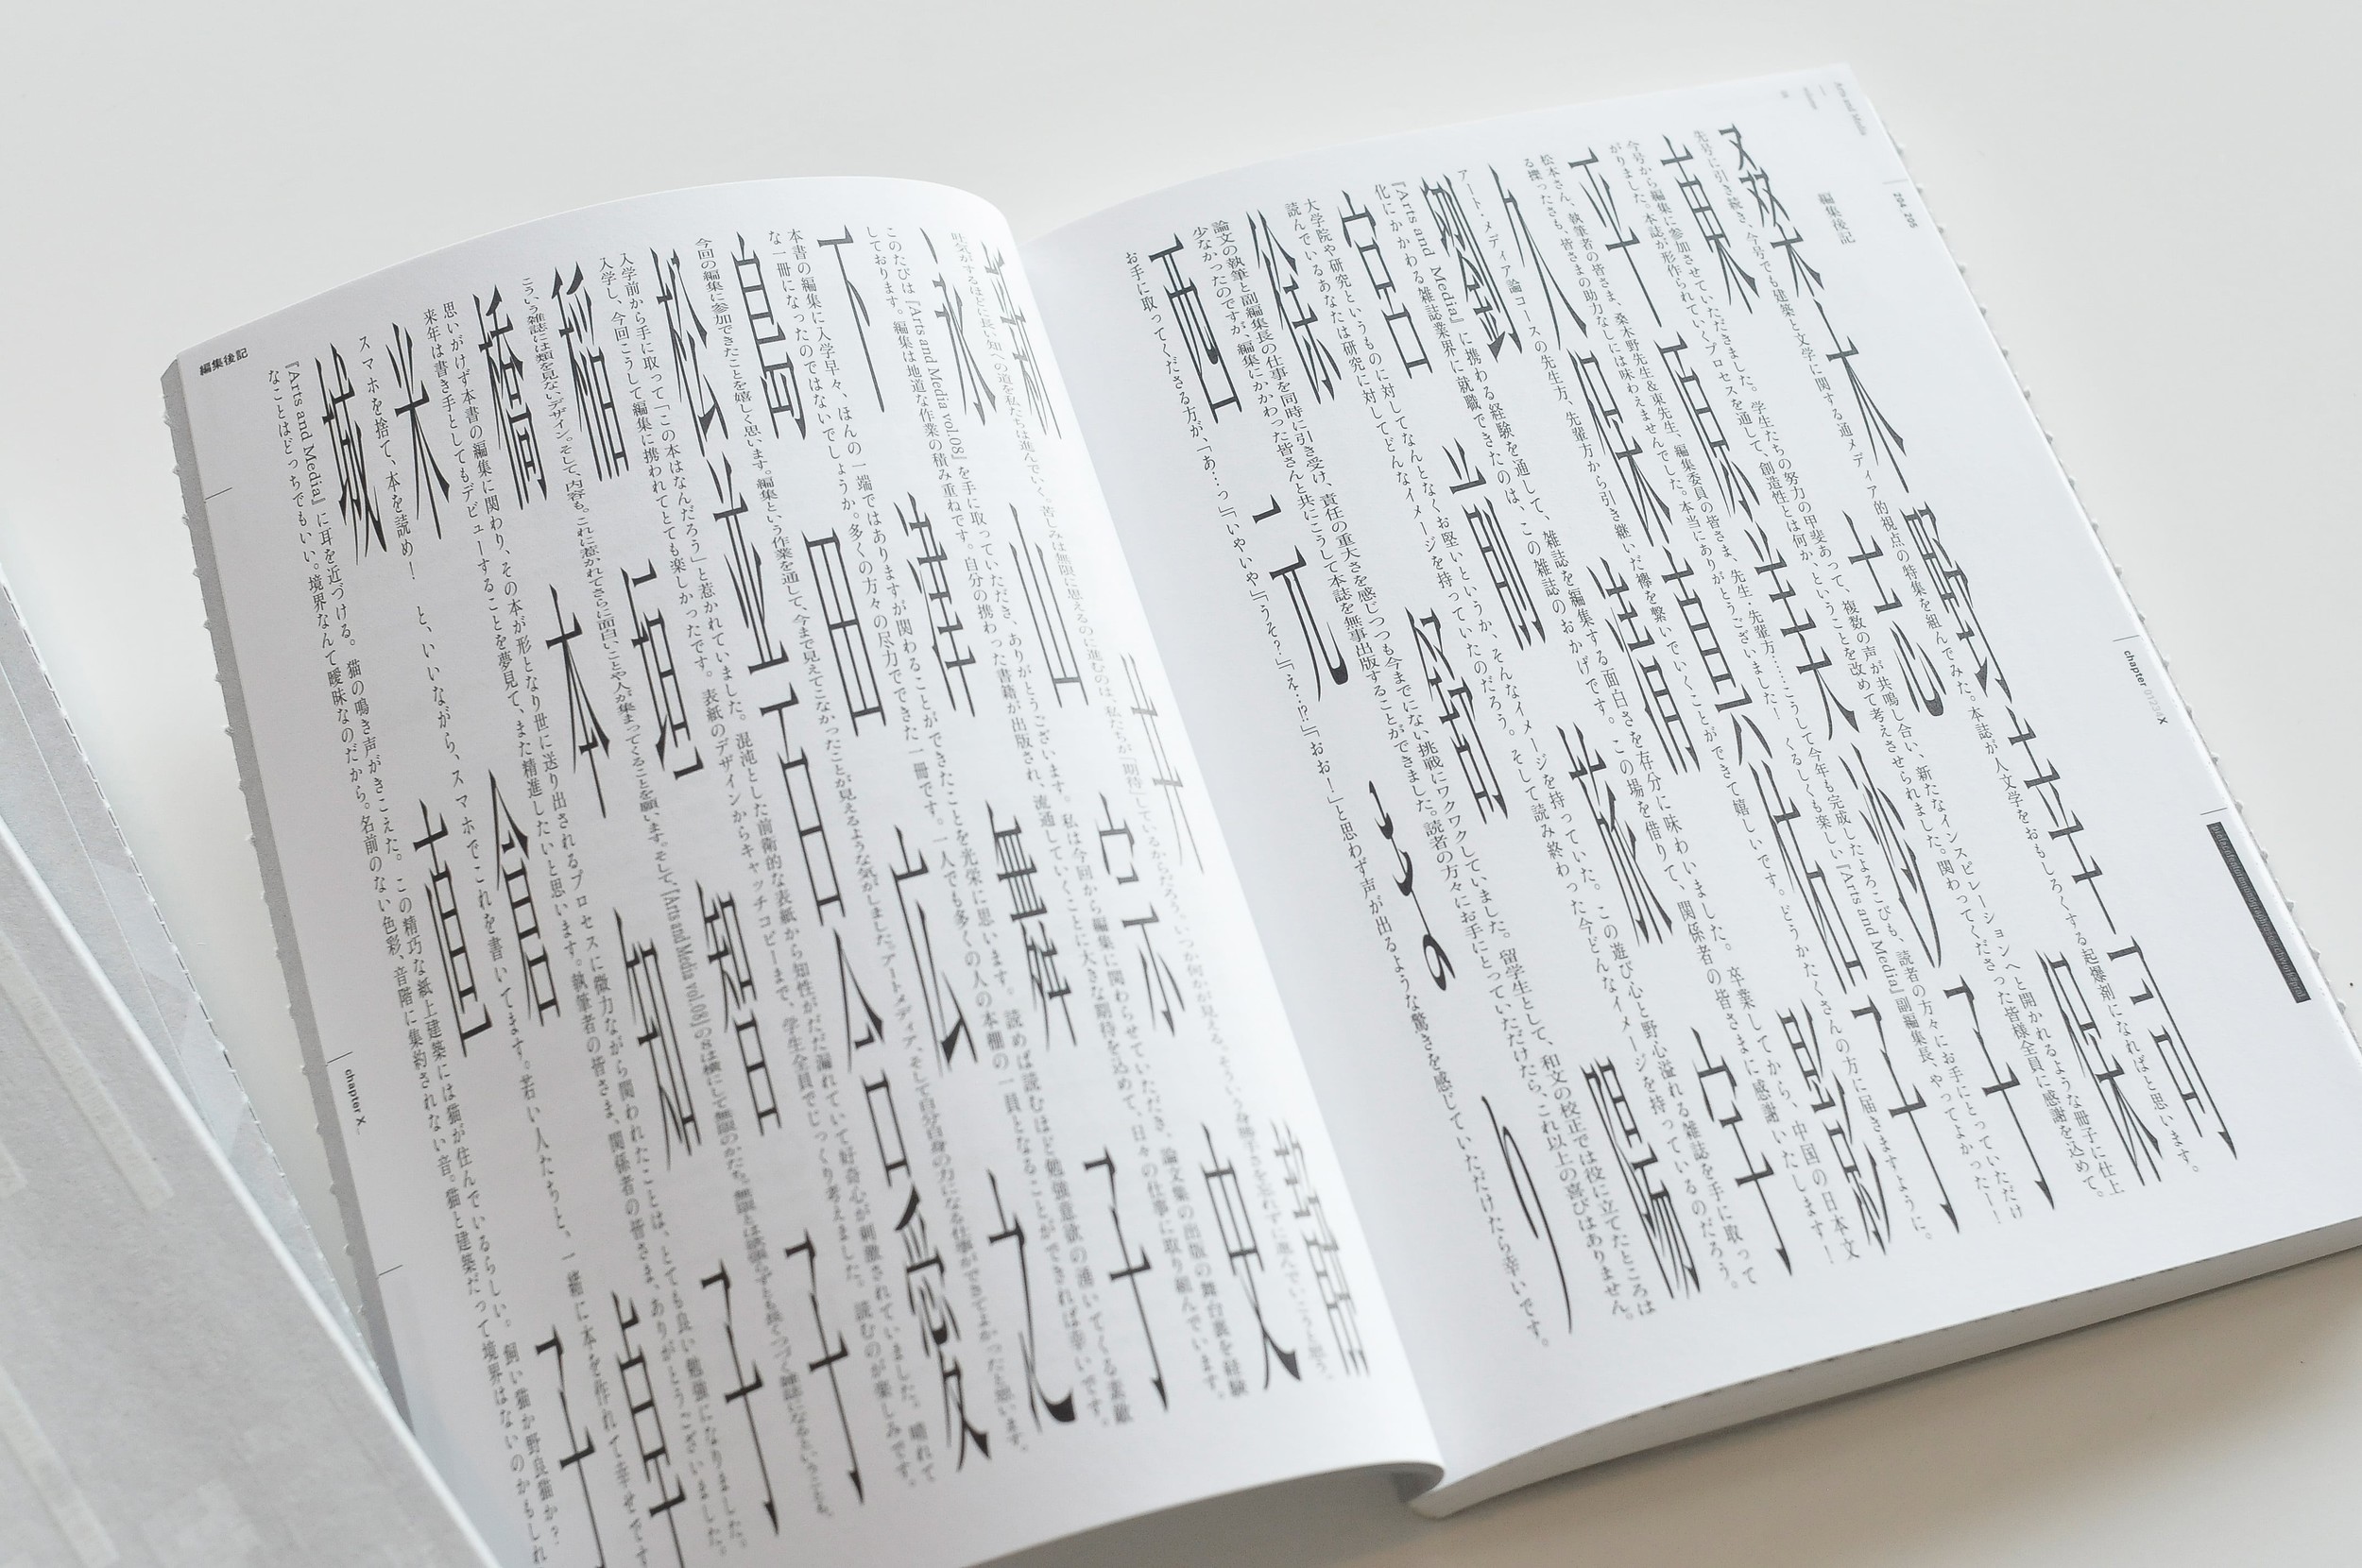 Arts and Media
204 205
編集後記
chapter 012345X
桑木野幸司
先号に引き続き、今号でも建築と文学に関する通メディア的視点の特集を組んでみた。本誌が人文学をおもしろくする起爆剤になればと思います。
東志保
今号から編集に参加させていただきました。学生たちの努力の甲斐あって、複数の声が共鳴し合い、新たなインスピレーションへと開かれるような冊子に仕上
がりました。本誌が形作られていくプロセスを通して、創造性とは何か、ということを改めて考えさせられました。関わってくださった皆様全員に感謝を込めて。
平原美沙子
松本さん、執筆者の皆さま、桑木野先生&東先生、編集委員の皆さま、先生・先輩方……こうして今年も完成したよろこびも、読者の方々にお手にとっていただけ
る擽ったさも、皆さまの助力なしには味わえませんでした。本当にありがとうございました! くるしくも楽しい『Arts and Media』副編集長、やってよかった!!
久保真佑子
アート・メディア論コースの先生方、先輩方から引き継いだ襷を繋いでいくことができて嬉しいです。どうかたくさんの方に届きますように。
劉清影
『Arts and Media』に携わる経験を通して、雑誌を編集する面白さを存分に味わいました。卒業してから、中国の日本文
化にかかわる雑誌業界に就職できたのは、この雑誌のおかげです。この場を借りて、関係者の皆さまに感謝いたします!
宮前旅宇
大学院や研究というものに対してなんとなくお堅いというか、そんなイメージを持っていた。この遊び心と野心溢れる雑誌を手に取って
読んでいるあなたは研究に対してどんなイメージを持っていたのだろう。そして読み終わった今どんなイメージを持っているのだろう。
徐筱陽
論文の執筆と副編集長の仕事を同時に引き受け、責任の重大さを感じつつも今までにない挑戦にワクワクしていました。留学生として、和文の校正では役に立てたところは
少なかったのですが、編集にかかわった皆さんと共にこうして本誌を無事出版することができました。読者の方々にお手にとっていただけたら、これ以上の喜びはありません。
西元まり
お手に取ってくださる方が、「あ…っ」「いやいや」「うそ?」「え…!?」「おお!」と思わず声が出るような驚きを感じていただけたら幸いです。
永山宗史
このたびは『Arts and Media vol.08』を手に取っていただき、ありがとうございます。私は今回から編集に関わらせていただき、論文集の出版の舞台裏を経験
しております。編集は地道な作業の積み重ねです。自分の携わった書籍が出版され、流通していくことに大きな期待を込めて、日々の仕事に取り組んでいます。
本書の編集に入学早々、ほんの一端ではありますが関わることができたことを光栄に思います。読めば読むほど勉強意欲の湧いてくる素敵
な一冊になったのではないでしょうか。多くの方々の尽力でできた一冊です。一人でも多くの人の本棚の一員となることができれば幸いです。
島田広之
今回の編集に参加できたことを嬉しく思います。編集という作業を通して、今まで見えてこなかったことが見えるような気がしました。アートメディア、そして自分自身の力になる仕事ができてよかったと思います。
入学前から手に取って「この本はなんだろう」と惹かれていました。混沌とした前衛的な表紙から知性がだだ漏れていて好奇心が刺激されていました。読むのが楽しみです。晴れて
入学し、今回こうして編集に携われてとても楽しかったです。表紙のデザインからキャッチコピーまで、学生全員でじっくり考えました。
稲垣智子
こういう雑誌には類を見ないデザイン。そして、内容も。これに惹かれてさらに面白いことや人が集まってくることを願います。そして、『Arts and Media vol.08』の8は横にして無限のかたち。
橋本知子
思いがけず本書の編集に関わり、その本が形となり世に送り出されるプロセスに微力ながら関われたことは、とても良い勉強になりました。
来年は書き手としてもデビューすることを夢見て、また精進したいと思います。執筆者の皆さま、関係者の皆さま、ありがとうございました。
米倉
スマホを捨て、本を読め! と、いいながら、スマホでこれを書いてます。若い人たちと、一緒に本を作れて幸せです
城直子
『Arts and Media』に耳を近づける。猫の鳴き声がきこえた。この精巧な紙上建築には猫が住んでいるらしい。飼い猫か野良猫か?
なことはどっちでもいい。境界なんて曖昧なのだから。名前のない色彩、音階に集約されない音。猫と建築だって境界はないのかもしれ
編集後記
chapter X